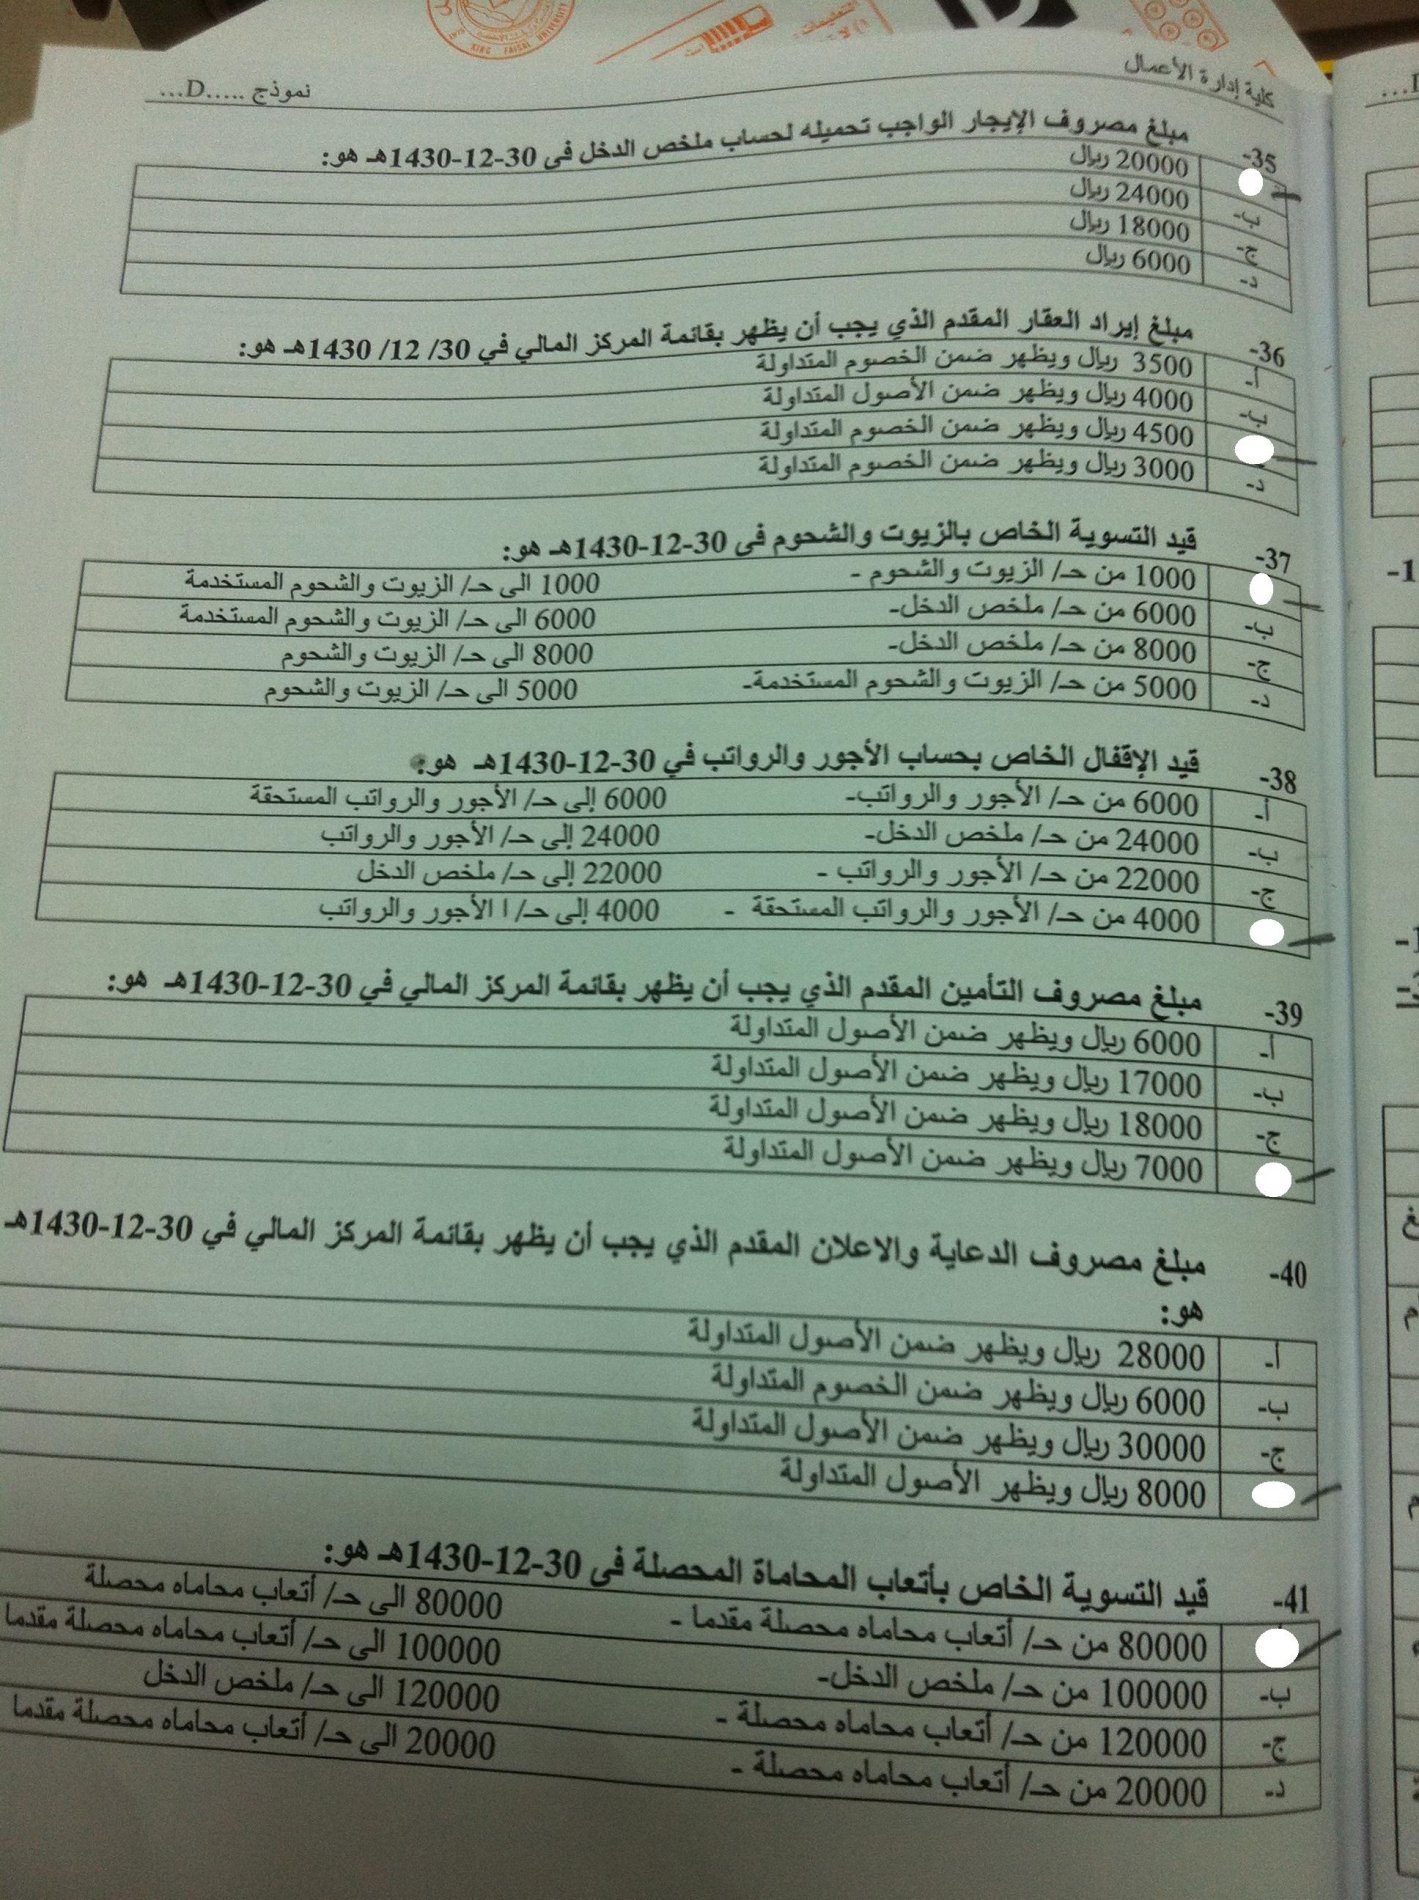 KING FAISAL UNIVERSITY
التعليمات
كلية إدارة الأعمال
نموذج .....D...
35- مبلغ مصروف الإيجار الواجب تحميله لحساب ملخص الدخل فى 30-12-1430هـ هو:
20000 ريال
ب- 24000 ريال
ج- 18000 ريال
د- 6000 ريال
36- مبلغ إيراد العقار المقدم الذي يجب أن يظهر بقائمة المركز المالي في 30/ 12/ 1430هـ هو:
أ- 3500 ريال ويظهر ضمن الخصوم المتداولة
ب- 4000 ريال ويظهر ضمن الأصول المتداولة
4500 ريال ويظهر ضمن الخصوم المتداولة
د- 3000 ريال ويظهر ضمن الخصوم المتداولة
37- قيد التسوية الخاص بالزيوت والشحوم فى 30-12-1430هـ هو:
1000 من حـ/ الزيوت والشحوم - 1000 الى حـ/ الزيوت والشحوم المستخدمة
ب- 6000 من حـ/ ملخص الدخل- 6000 الى حـ/ الزيوت والشحوم المستخدمة
ج- 8000 من حـ/ ملخص الدخل- 8000 الى حـ/ الزيوت والشحوم
د- 5000 من حـ/ الزيوت والشحوم المستخدمة- 5000 الى حـ/ الزيوت والشحوم
38- قيد الإقفال الخاص بحساب الأجور والرواتب في 30-12-1430هـ هو:
أ- 6000 من حـ/ الأجور والرواتب- 6000 إلى حـ/ الأجور والرواتب المستحقة
ب- 24000 من حـ/ ملخص الدخل- 24000 إلى حـ/ الأجور والرواتب
ج- 22000 من حـ/ الأجور والرواتب - 22000 إلى حـ/ ملخص الدخل
4000 من حـ/ الأجور والرواتب المستحقة - 4000 إلى حـ/ ا الأجور والرواتب
39- مبلغ مصروف التأمين المقدم الذي يجب أن يظهر بقائمة المركز المالي في 30-12-1430هـ هو:
أ- 6000 ريال ويظهر ضمن الأصول المتداولة
ب- 17000 ريال ويظهر ضمن الأصول المتداولة
ج- 18000 ريال ويظهر ضمن الأصول المتداولة
7000 ريال ويظهر ضمن الأصول المتداولة
40- مبلغ مصروف الدعاية والاعلان المقدم الذي يجب أن يظهر بقائمة المركز المالي في 30-12-1430هـ
هو:
أ- 28000 ريال ويظهر ضمن الأصول المتداولة
ب- 6000 ريال ويظهر ضمن الخصوم المتداولة
ج- 30000 ريال ويظهر ضمن الأصول المتداولة
8000 ريال ويظهر الأصول المتداولة
41- قيد التسوية الخاص بأتعاب المحاماة المحصلة فى 30-12-1430هـ هو:
80000 من حـ/ أتعاب محاماه محصلة مقدما - 80000 الى حـ/ أتعاب محاماه محصلة
ب- 100000 من حـ/ ملخص الدخل- 100000 الى حـ/ أتعاب محاماه محصلة مقدما
ج- 120000 من حـ/ أتعاب محاماه محصلة - 120000 الى حـ/ ملخص الدخل
د- 20000 من حـ/ أتعاب محاماه محصلة - 20000 الى حـ/ أتعاب محاماه محصلة مقدما